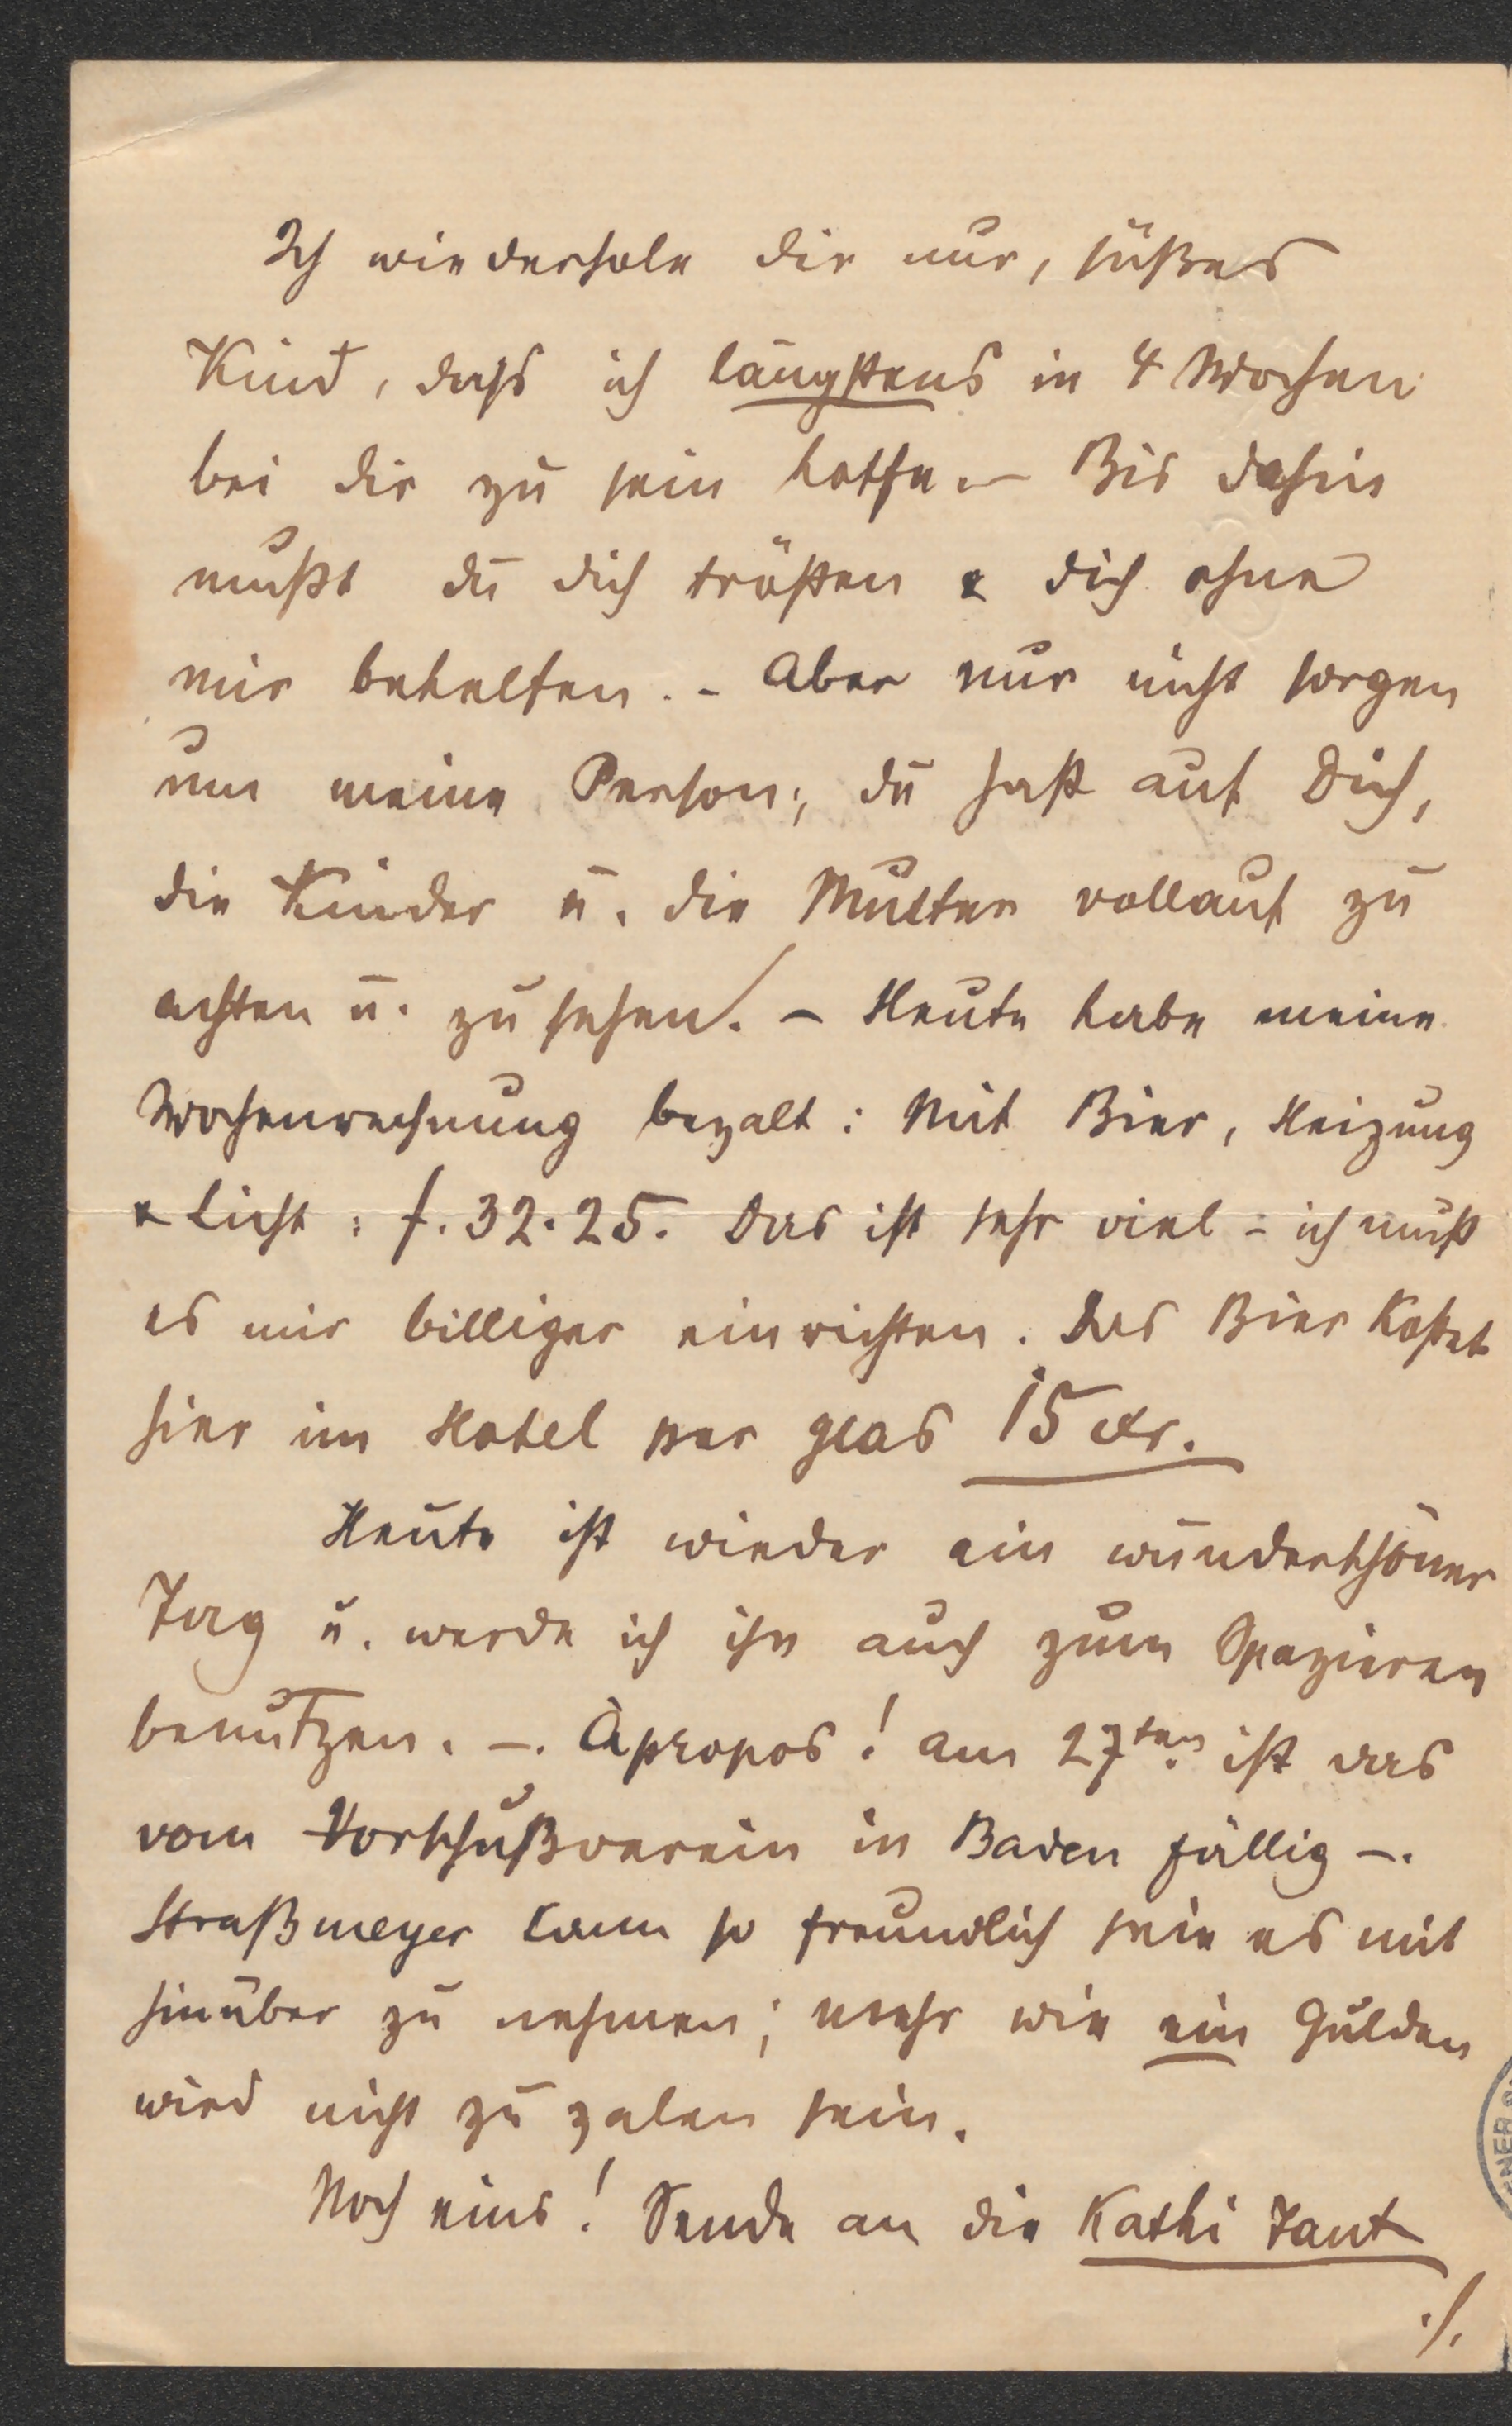 Ich wiederhole dir nur, süßes
Kind, dass ich längstens in 4 Wochen
bei dir zu sein hoffe. – Bis dahin
mußt du dich trösten & dich ohne
mir behelfen. – Aber nur nicht sorgen
um meine Person; du hast auf Dich,
die Kinder u. die Mutter vollauf zu
achten u. zu sehen! – Heute habe meine
Wochenrechnung bezalt: Mit Bier, Heizung
& Licht: f. 32.25. Das ist sehr viel – ich muß
es mir billiger einrichten. Das Bier kostet
hier im Hotel per Glas 15 xr.
Heute ist wieder ein wunderschöner
Tag u. werde ich ihn auch zum Spazieren
benutzen. –. Àpropos! am 27ten ist das
vom Vorschußverein in Baden fällig –.
Straßmeyer kann so freundlich sein es mit
hinüber zu nehmen; mehr wie ein Gulden
wird nicht zu zalen sein.
Noch eins! Sende an die Kathi Tant
./.